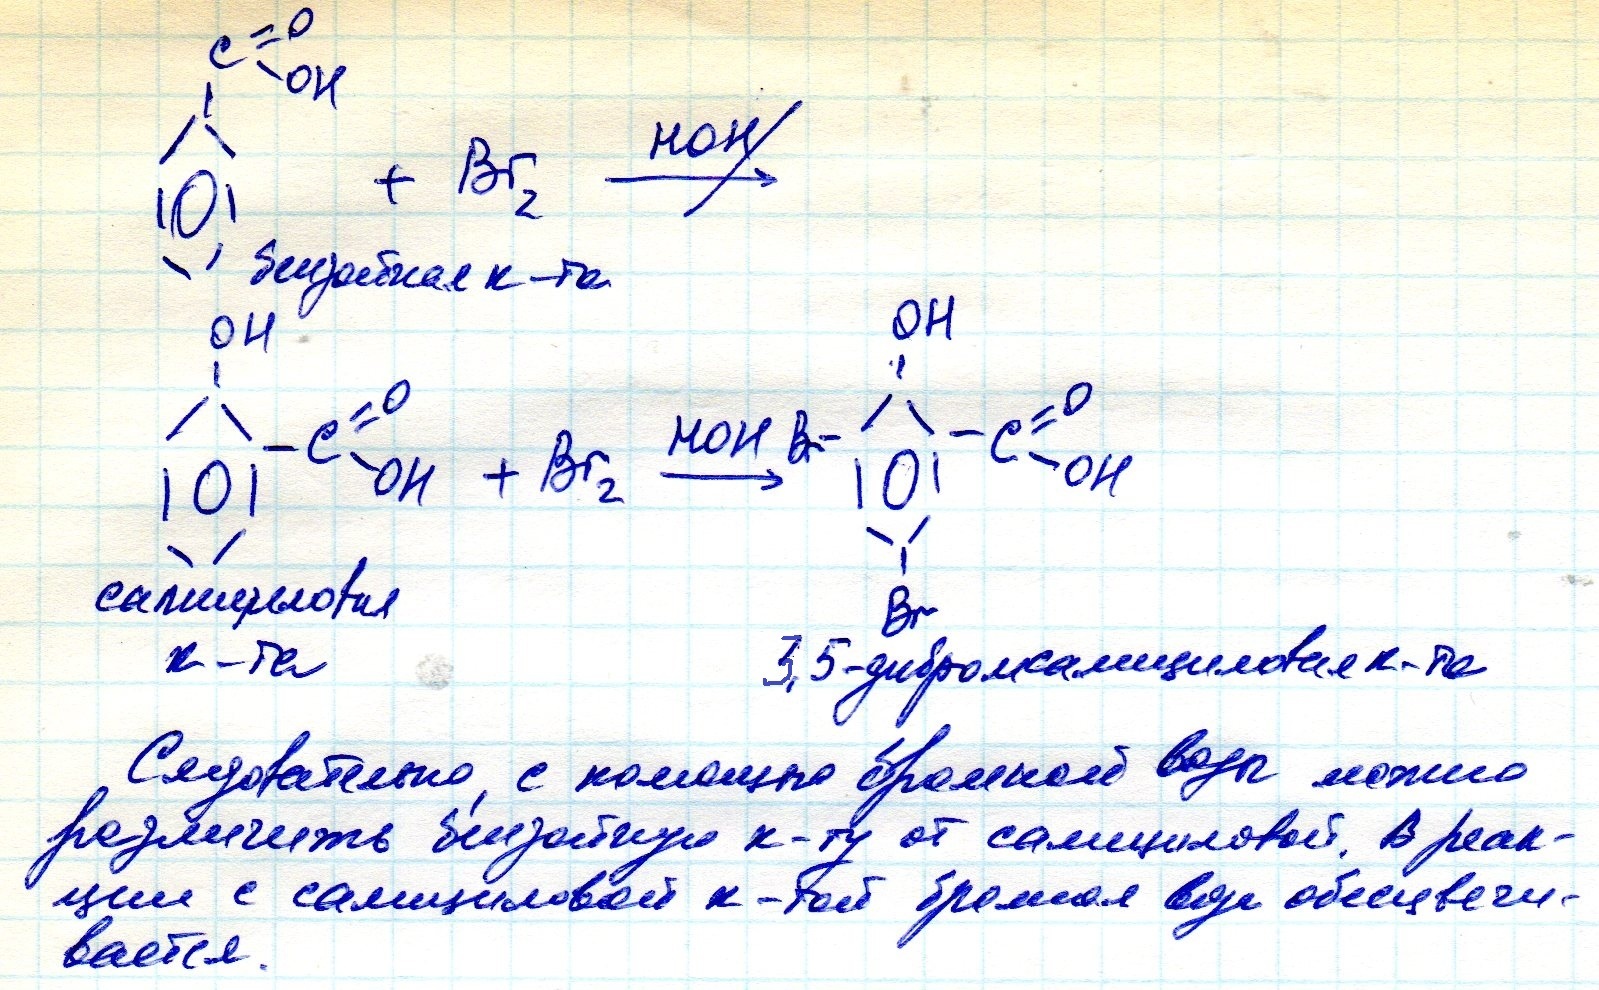 C=O
OH
+ Br2 HOH
бензойная к-та
OH
C=O
OH
+ Br2 HOH
OH
Br- -C=O
OH
Br
салициловая
к-та
3,5-дибромсалициловая к-та
Следовательно, с помощью бромной воды можно
различить бензойную к-ту от салициловой. В реак-
ции с салициловой к-той бромная вода обесцвечи-
вается.